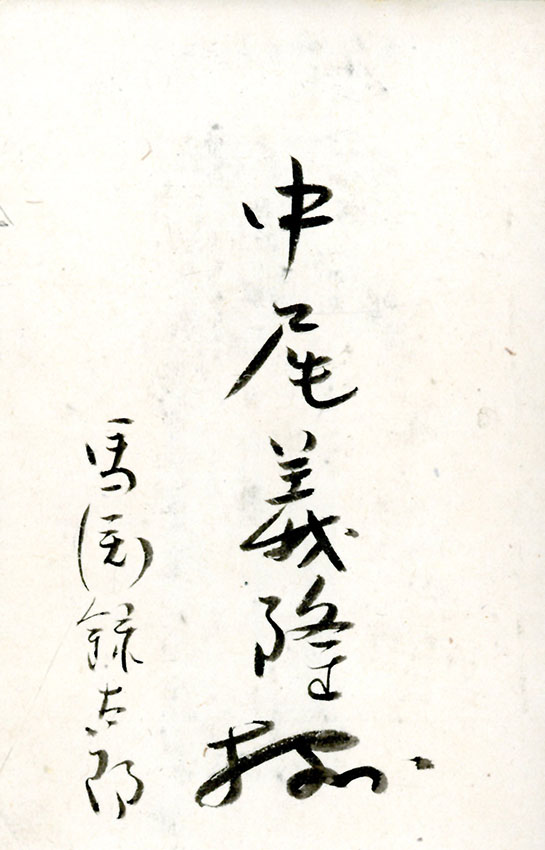 中尾義隆様
馬園録太郎